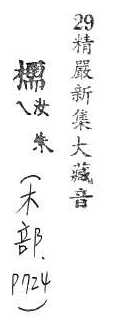 29精嚴新集大藏音
檽汝
(木部. P724)